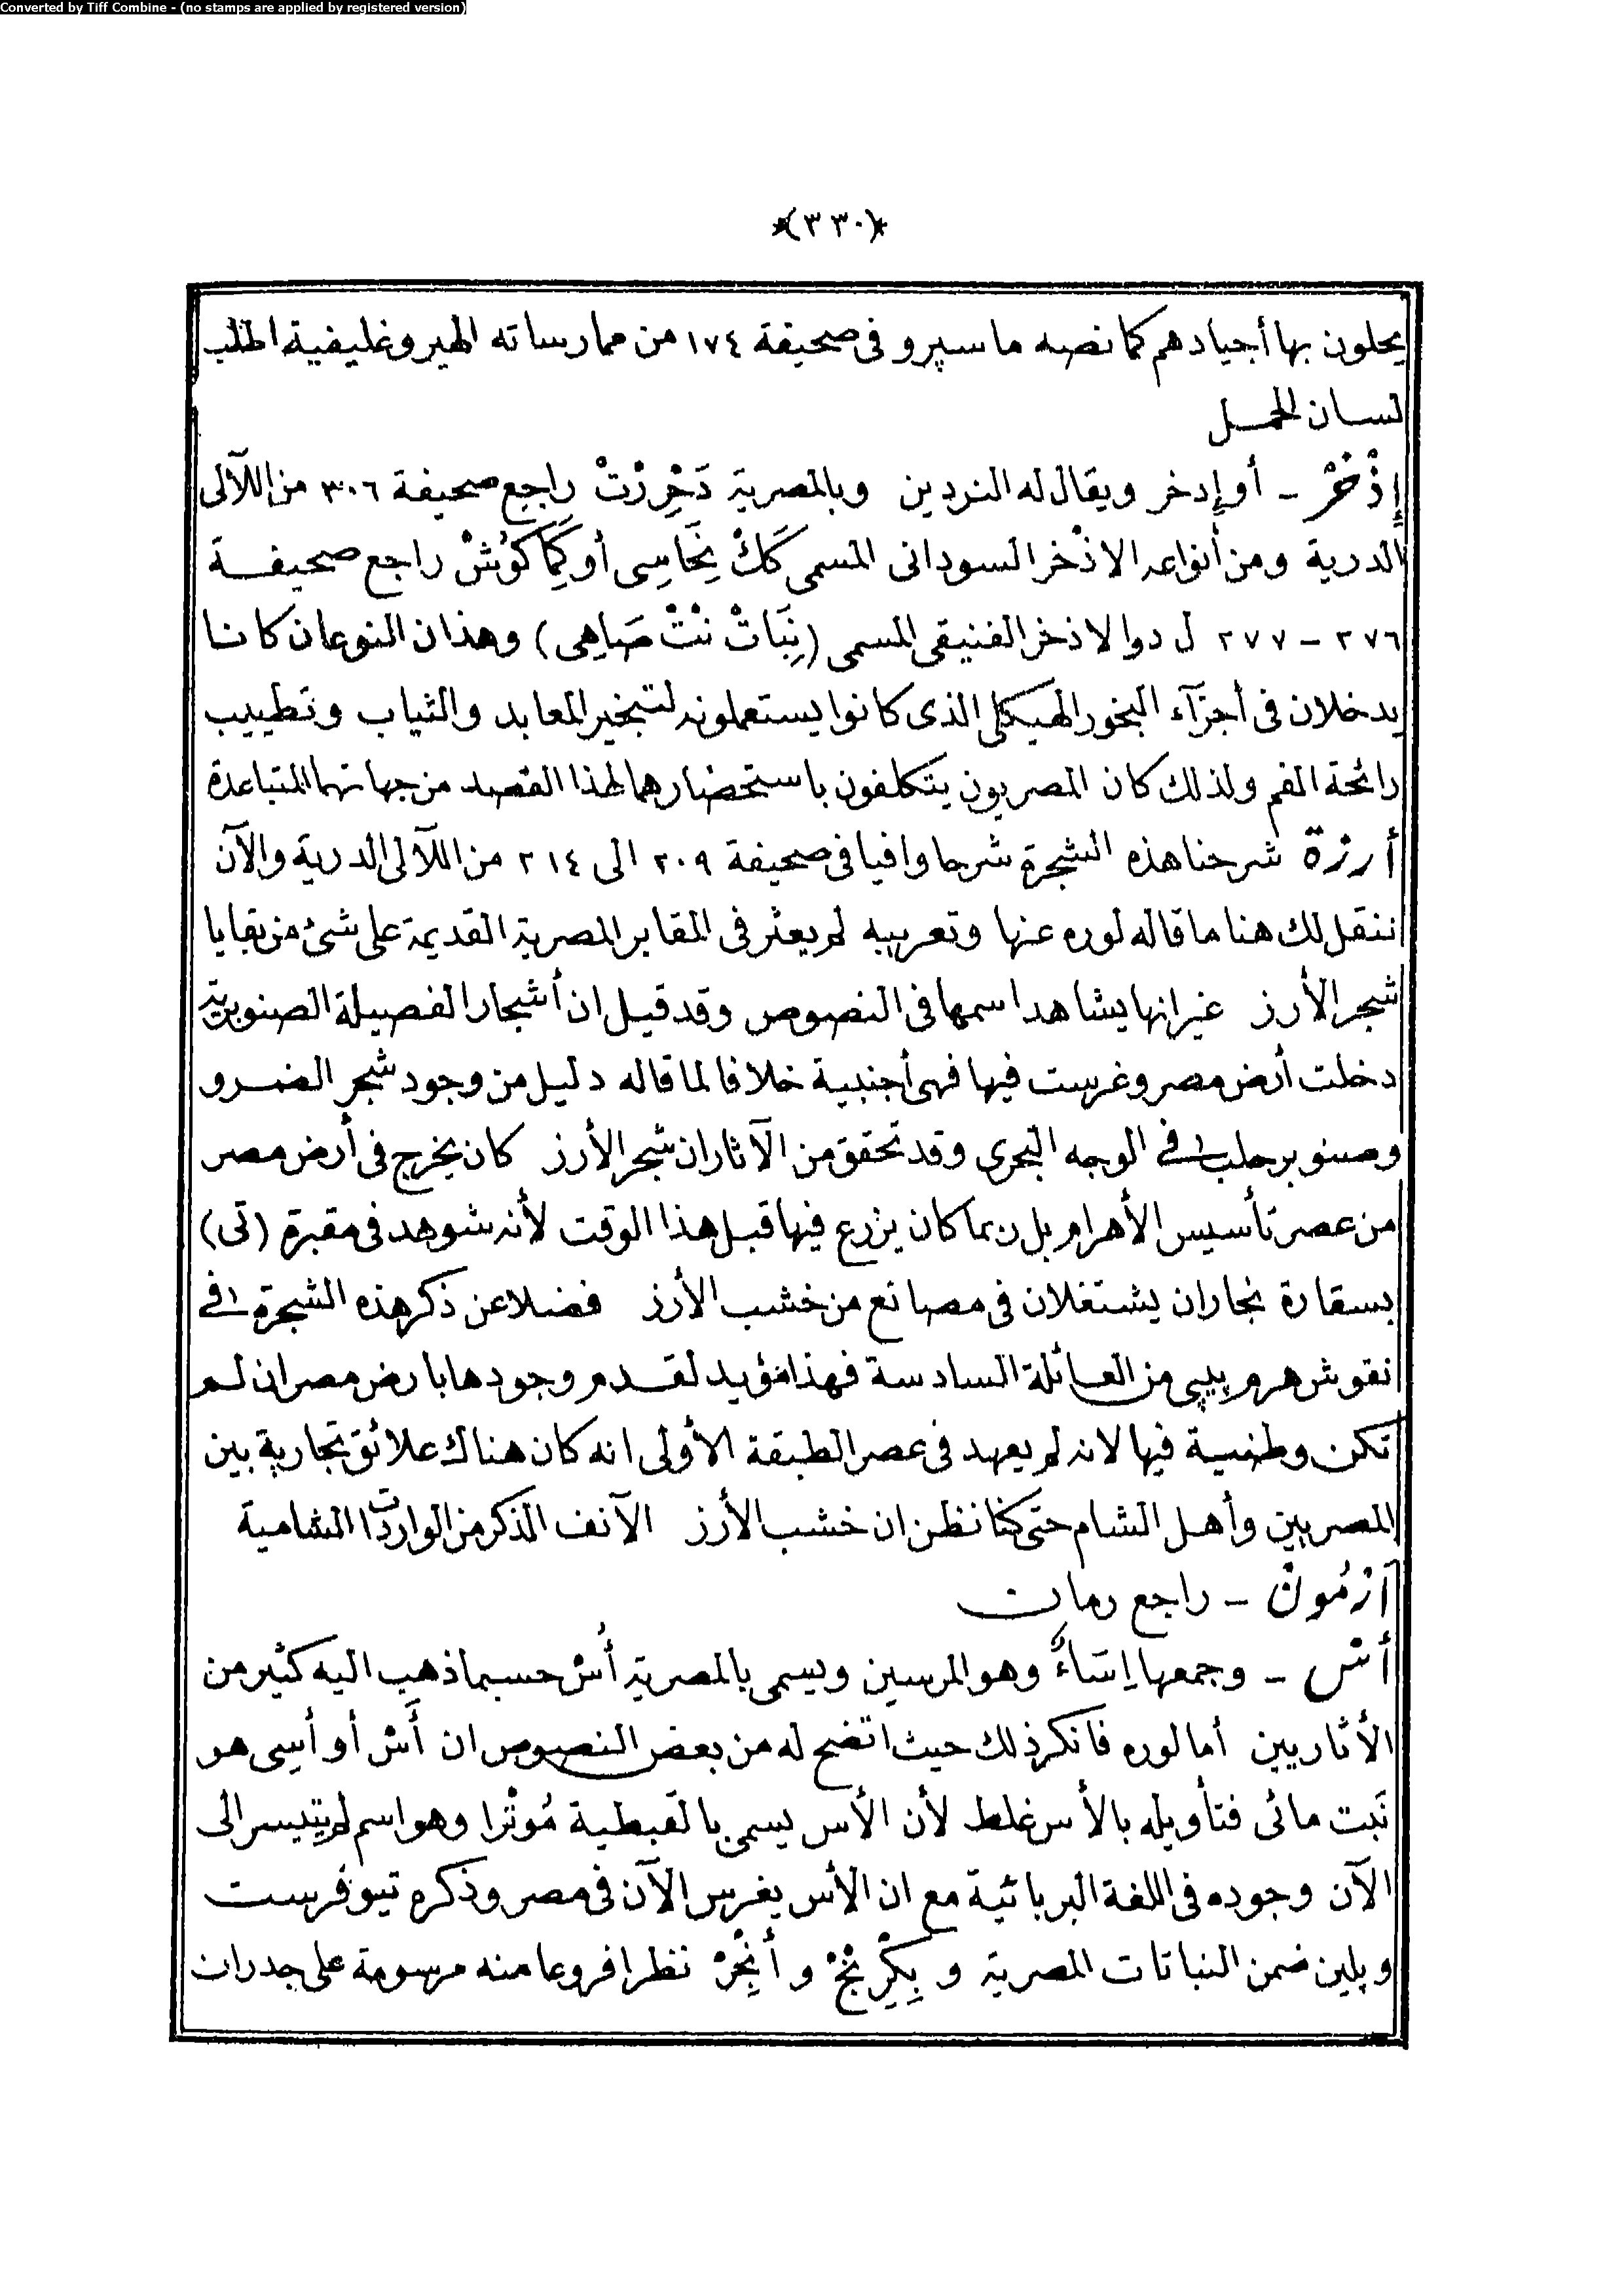 Converted by Tiff Combine - (no stamps are applied by registered version)
*(٣٣٠)*
يحلون بها أجيادهم كما نصه ماسپرو فى صحيفة ١٧٤ من ممارساته الهيروغليفية اطلب
لسان الحمل
إذْخَرْ - أو إدخر ويقال له النردين وبالمصرية دَخِرْتْ راجع صحيفة ٣٠٦ من اللآلى
الدرية ومن أنواعه الاذْخر السودانى المسمى كَكْ نِحَاسِى أو كَمَا كُوشْ راجع صحيفة
٢٧٦ - ٢٧٧ ل د والاذخر الفنيقى المسمى (نِبَاتْ نْتْ صَاهِى) وهذان النوعان كانا
يدخلان فى أجزآء البخور الهيكلى الذى كانوا يستعملونه لتبخير المعابد والثياب وتطييب
رائحة الفم ولذلك كان المصريون يتكلفون باستحضارهما لهذا القصد من جهاتهما المتباعدة
أرزة شرحنا هذه الشجرة شرحا وافيا فى صحيفة ٢٠٩ الى ٢١٤ من اللآلى الدرية والآن
ننقل لك هنا ما قاله لوره عنها وتعريبه لم يعثر فى المقابر المصرية القديمة على شئ من بقايا
شجر الأرز غير انها يشاهد اسمها فى النصوص وقد قيل ان أشجار الفصيلة الصنوبرية
دخلت أرض مصر وغرست فيها فهى أجنبية خلافا لما قاله دليل من وجود شجر الضرو
وصنوبر حلب فى الوجه البحرى وقد تحقق من الآثار ان شجر الأرز كان يخرج فى أرض مصر
من عصر تأسيس الأهرام بل ربما كان يزرع فيها قبل هذا الوقت لأنه شوهد فى مقبرة (تى)
بسقارة نجاران يشتغلان فى مصانع من خشب الأرز فضلا عن ذكر هذه الشجرة فى
نقوش هرم پيپى من العائلة السادسة فهذا مؤيد لقدم وجودها بارض مصر ان لم
تكن وطنية فيها لانه لم يعهد فى عصر الطبقة الأولى انه كان هناك علائق تجارية بين
المصريين وأهل الشام حتى كنا نظن ان خشب الأرز الآنف الذكر من الواردات الشامية
أرْمُونْ - راجع رمان
أسْ - وجمعها اِسَاءٌ وهو المرسين ويسمى بالمصرية أُسْ حسبما ذهب اليه كثير من
الأثاريين أما لوره فانكر ذلك حيث اتضح له من بعض النصوص ان أَسْ أو أسِى هو
نَبت مائى فتأويله بالأس غلط لأن الأس يسمى بالقبطية مُوتْرا وهو اسم لم يتيسر الى
الآن وجوده فى اللغة البربائية مع ان الأس يغرس الآن فى مصر وذكره تيوفرست
وپلين ضمن النباتات المصرية و پِكِرِنْجْ و أُنْجِرْ نظرا فروعا منه مرسومة على جدران